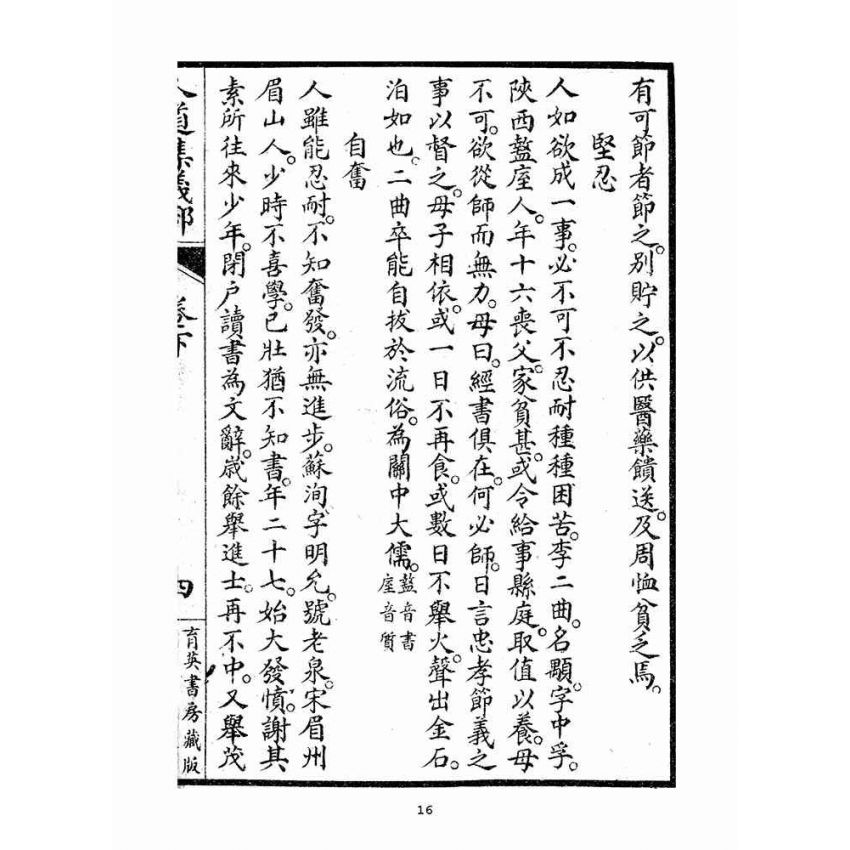 有可節者節之。別貯之。以供醫藥饋送。及周恤貧乏焉。
堅忍
人如欲成一事。必不可不忍耐種種困苦。李二曲。名顒。字中孚。
陝西盩庢人。年十六喪父。家貧甚。或令給事縣庭。取值以養。母
不可。欲從師而無力。母曰。經書俱在。何必師。日言忠孝節義之
事以督之。母子相依。或一日不再食。或數日不舉火。聲出金石。
泊如也。二曲卒能自拔於流俗。為關中大儒。盩音書
庢音質
自奮
人雖能忍耐。不知奮發。亦無進步。蘇洵字明允。號老泉。宋眉州
眉山人。少時不喜學。已壯猶不知書。年二十七。始大發憤。謝其
素所往來少年。閉戶讀書為文辭。歲餘舉進士。再不中。又舉茂
人道集義部
卷下
四
育英書房藏版
16